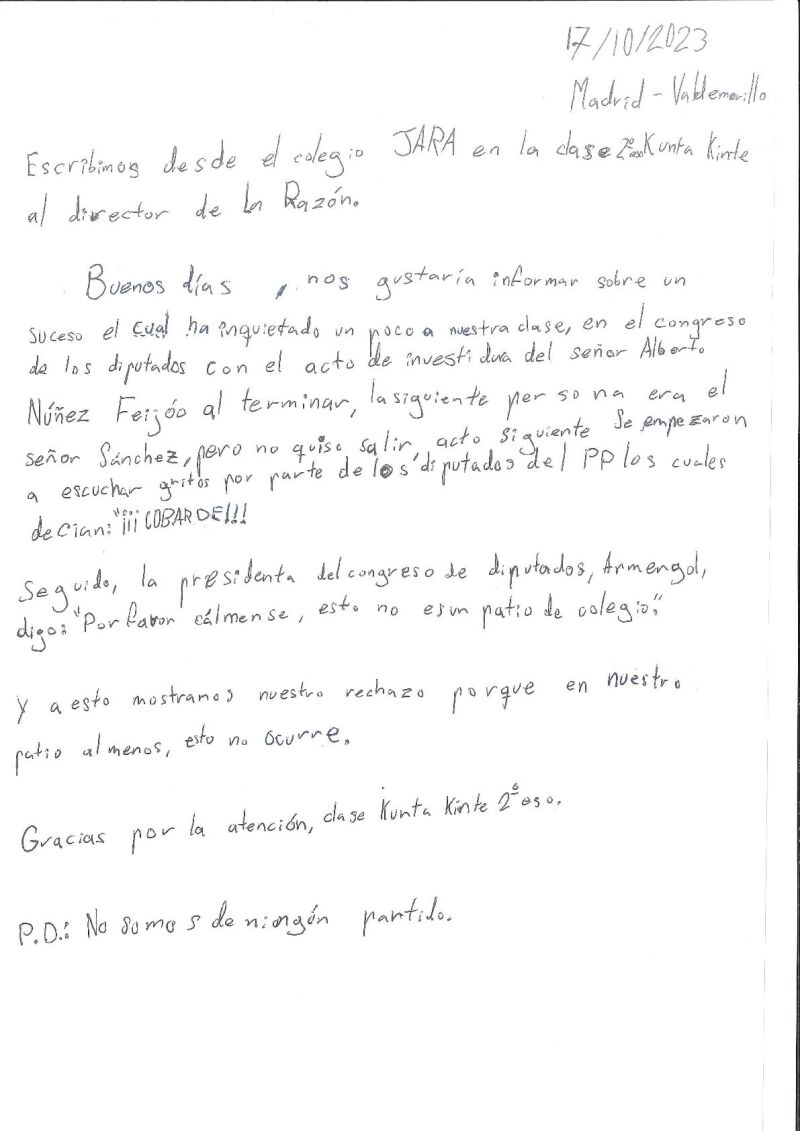 17/10/2023
Madrid - Valdemorillo
Escribimos desde el colegio JARA en la clase 2º eso Kunta Kinte
al director de La Razón.
Buenos días, nos gustaría informar sobre un
suceso el cual ha inquietado un poco a nuestra clase, en el congreso
de los diputados con el acto de investidura del señor Alberto
Núñez Feijóo al terminar, la siguiente persona era el
señor Sánchez, pero no quiso salir, acto siguiente se empezaron
a escuchar gritos por parte de los diputados del PP los cuales
decian: "¡¡¡COBARDE!!!
Seguido, la presidenta del congreso de diputados, Armengol,
digo: "Por favor cálmense, esto no es un patio de colegio."
Y a esto mostramos nuestro rechazo porque en nuestro
patio al menos, esto no ocurre.
Gracias por la atención, clase Kunta Kinte 2º eso.
P.D.: No somos de ningún partido.